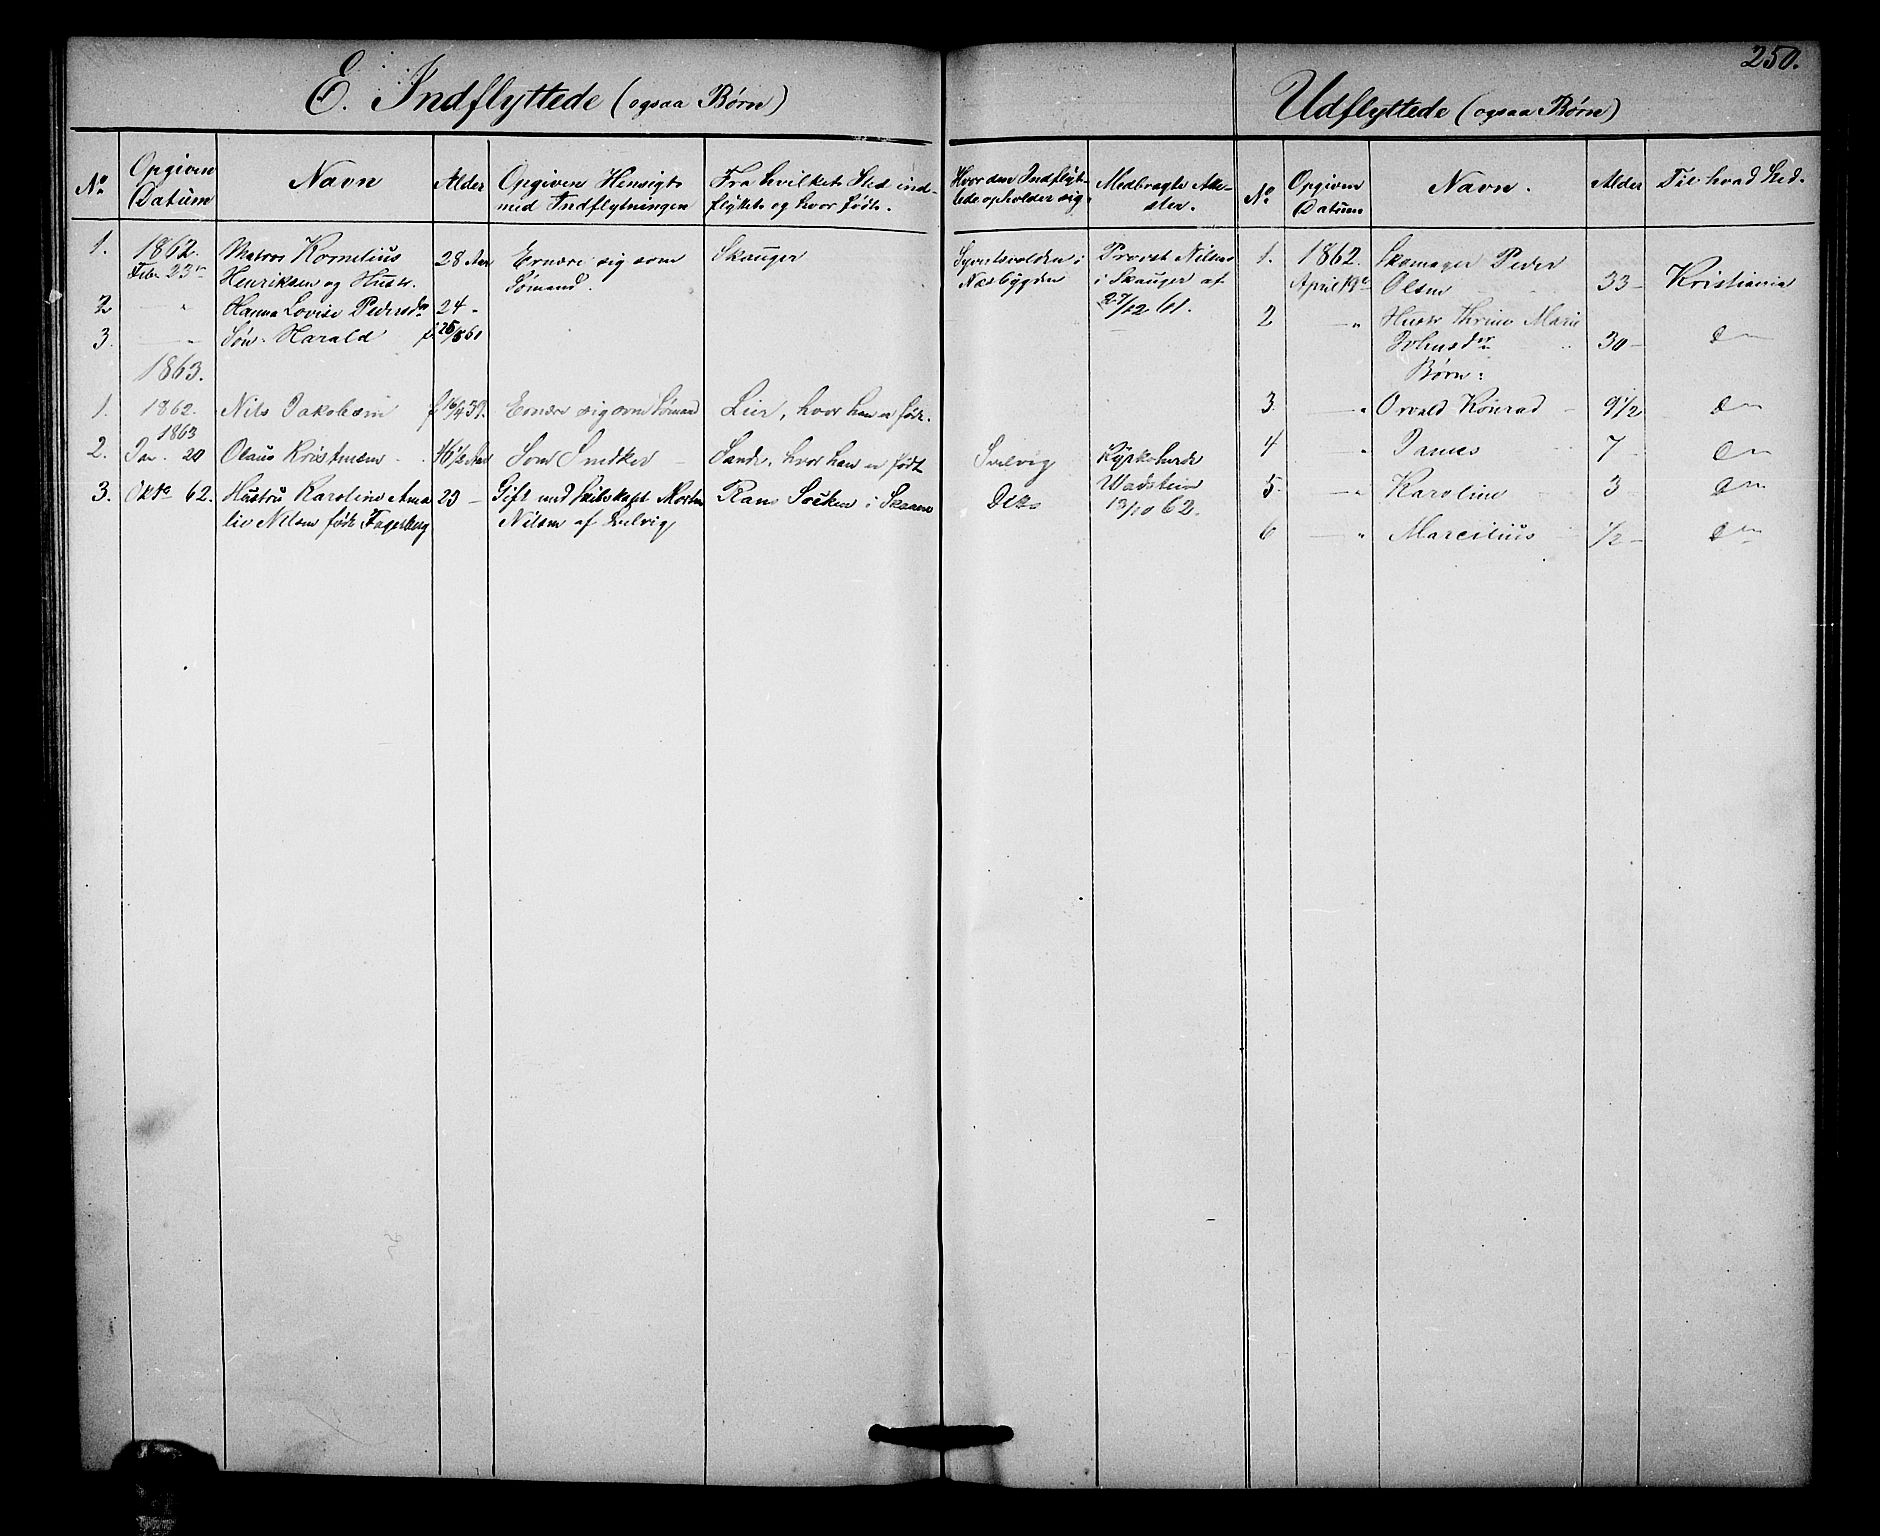 250.
E. Indflyttede (ogsaa Børn)
No
Opgiven Datum
Navn
Alder
Opgiven Hensigt med Indflytningen
Fra hvilket Sted indflyttet og hvor født.
Hvor den Indflyttede opholder sig.
Medbragte Attester.
1. 1862. Febr 23de Matros Kornelius Henriksen og Hustr. 28 Aar Ernære sig som Sømand. Skauger i Næsbygden Provst Nilsen i Skauger af 27/12 61.
2 — " Hanna Lovise Pedersdr 24 -
3. — " Søn. Harald
1863.
1. 1862. Nils Jakobsen Ernære sig som Sømand Lier, hvor han er født.
2. 1863 Jan. 20 Olaus Kristensen 16 1/2 Aar Som Snedker Sande, hvor han er født Svelvig
3. Oktr 62. Hustru Karoline Amalie Nilsen født Fagerberg 23 — Gift med Skibskapt Morten Nilsen af Svelvig Rans Socken i Skaane Dito Kyrkoherde Wadstein 13/10 62.
Udflyttede (ogsaa Børn)
No
Opgiven Datum
Navn.
Alder
Til hvad Sted.
1. 1862. April Skomager Peder Olsen 33 — Kristiania
2 — " Hustr Thrine Marie Johnsdr 30 — do
Børn:
3. — " Osvald Konrad 9 1/2 do
4 — " James 7 — do
5. — " Karoline 3 do
6 — " Marcilius 1/2 — do